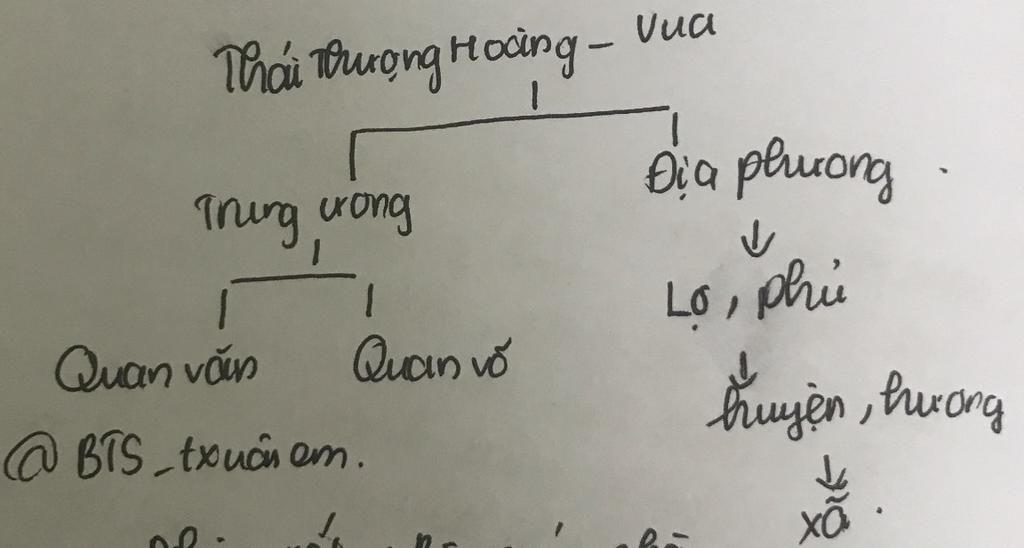 Thái Thượng Hoàng - Vua
Trung ương
Địa phương.
Lộ, phủ
Quan văn
Quan võ
huyện, hương
xã.
@BTS_txuân em.